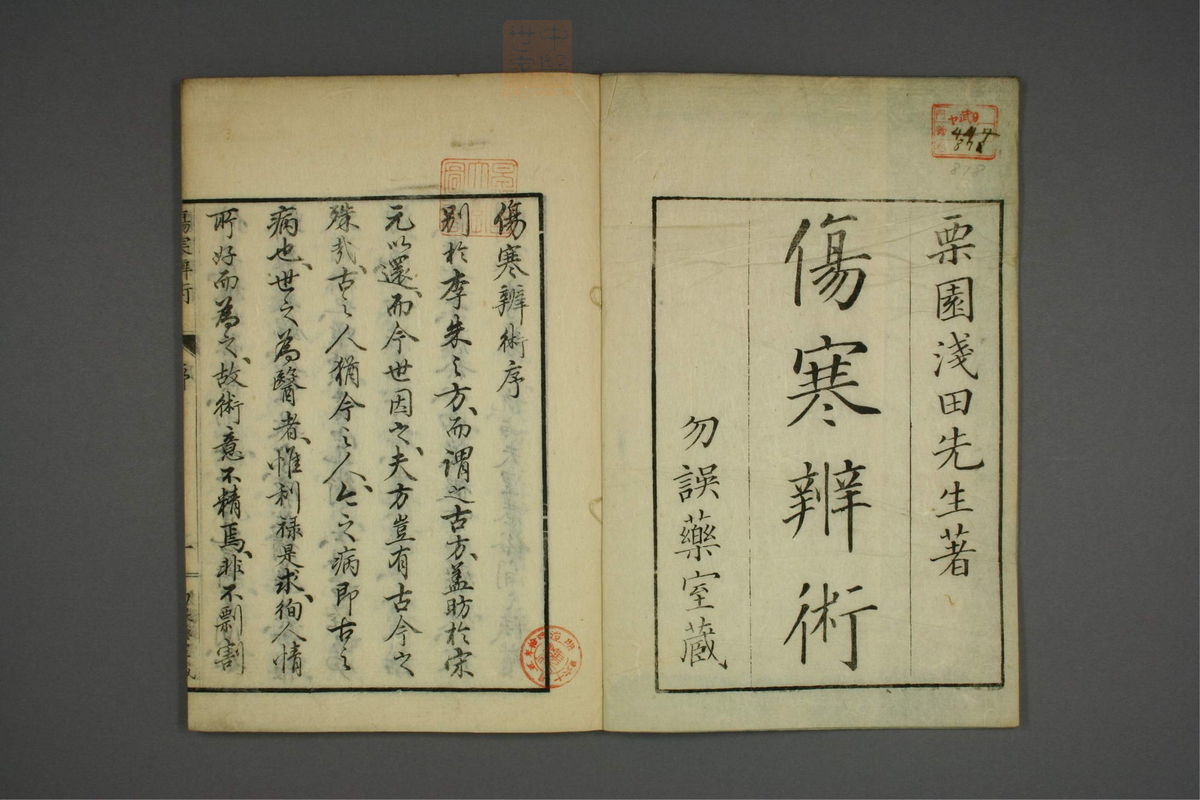 栗園淺田先生著
傷寒辨術
勿誤藥室蔵
傷寒辨術序
別於李朱之方、而謂之古方、蓋昉於宋
元以還、而今世因之、夫方豈有古今之
殊哉、古之人猶今之人、今之病即古之
病也、世之為醫者、惟利祿是求、徇人情
所好而為之、故術意不精焉、非不剽割
傷寒辨術
序
一